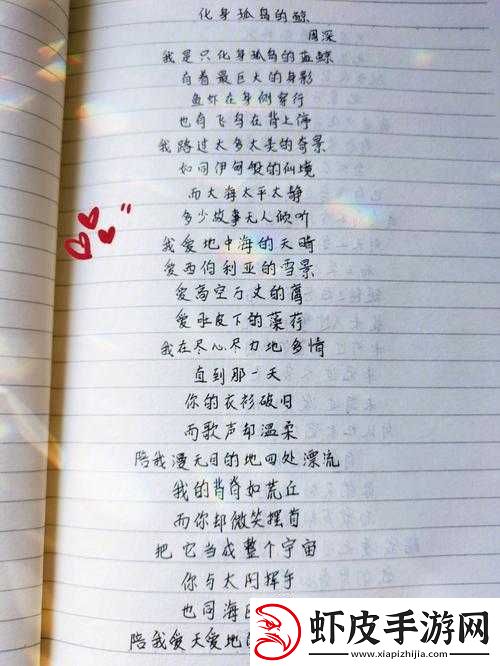 化身孤鸟的鲸
周深
我是只化身孤鸟的蓝鲸
有着最巨大的身影
鱼虾在身侧穿行
也有飞鸟在背上停
我路过太多太美的奇景
如同伊甸般的仙境
而大海太平太静
多少故事无人倾听
我爱地中海的天晴
爱西伯利亚的雪景
爱高空万丈的鹰
爱水皮下的藻荇
我在尽心尽力地多情
直到那一天
你的衣衫破旧
而歌声却温柔
陪我漫无目的地四处漂流
我的背脊如荒丘
而你却微笑摆首
把它当成整个宇宙
你与太阳挥手
也同海
陪我爱天爱地
虾皮手游网
www.xiapizhijia.com